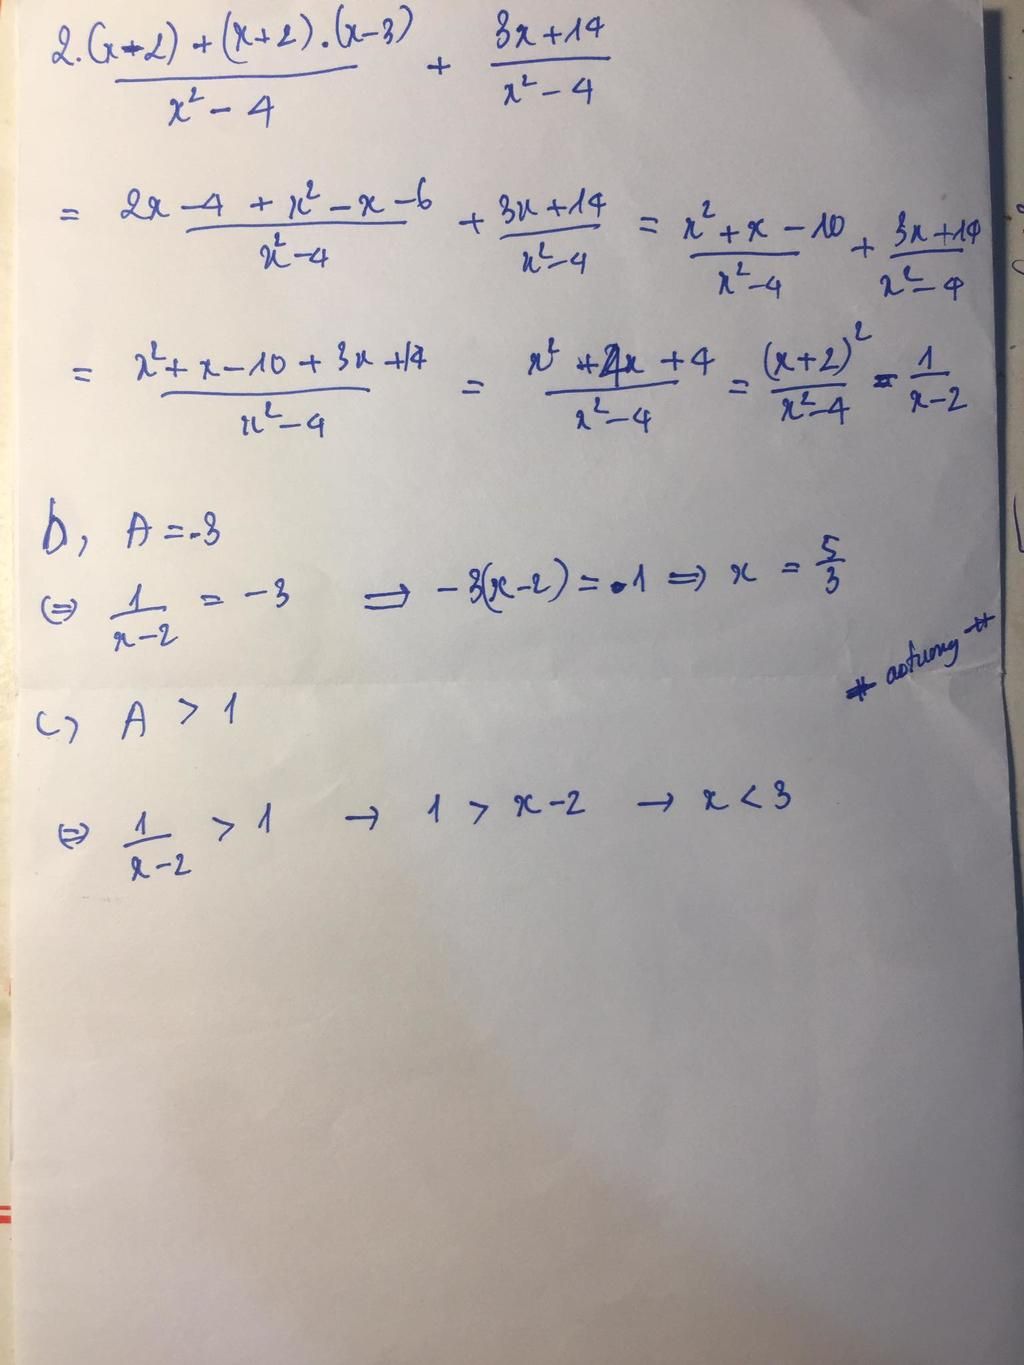 2.(x-2) + (x+2).(x-3) / x² - 4 + 3x+14 / x² - 4
= 2x - 4 + x² - x - 6 / x² - 4 + 3x+14 / x² - 4 = x² + x - 10 / x² - 4 + 3x+14 / x² - 4
= x² + x - 10 + 3x + 14 / x² - 4 = x² + 4x + 4 / x² - 4 = (x+2)² / x² - 4 = 1 / x-2
b, A = -3
⇔ 1 / x-2 = -3 ⇒ -3(x-2) = 1 ⇒ x = 5/3
c) A > 1
⇔ 1 / x-2 > 1 → 1 > x-2 → x < 3